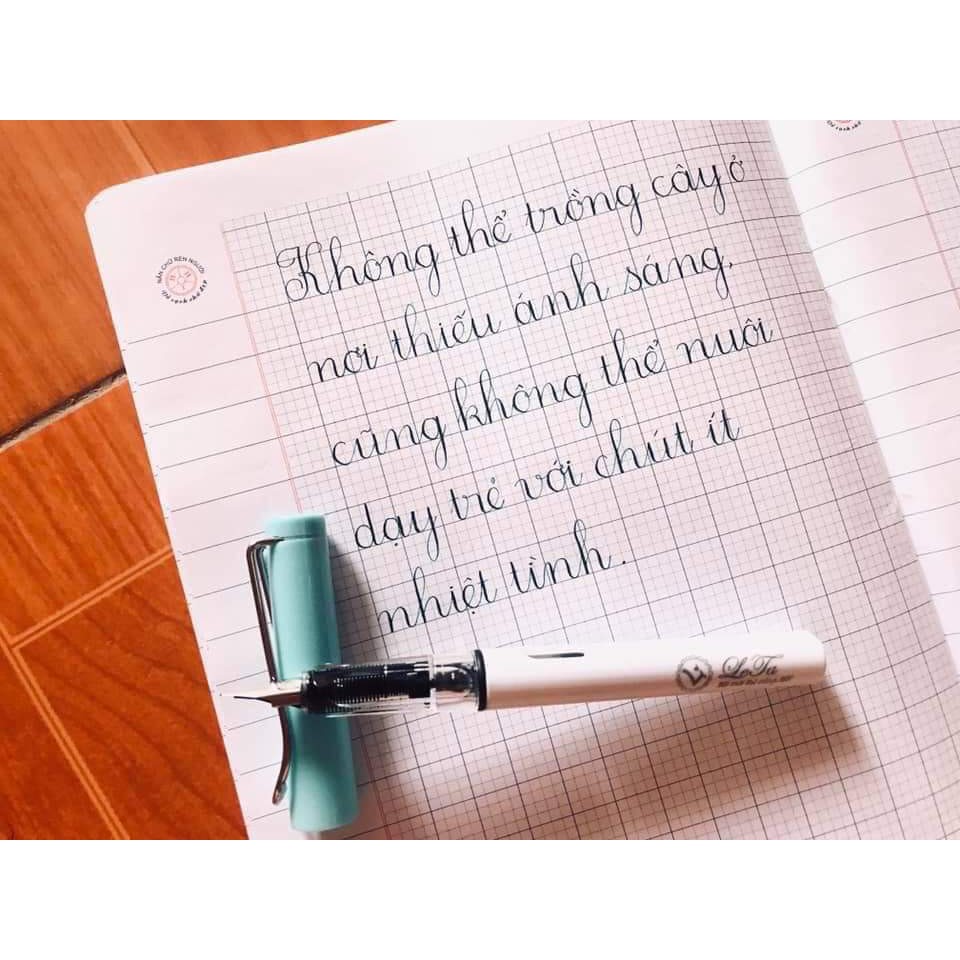 NẮN CHỮ RÈN NGƯỜI
Không thể trồng cây ở
nơi thiếu ánh sáng,
cũng không thể nuôi
dạy trẻ với chút ít
nhiệt tình.
LeTa